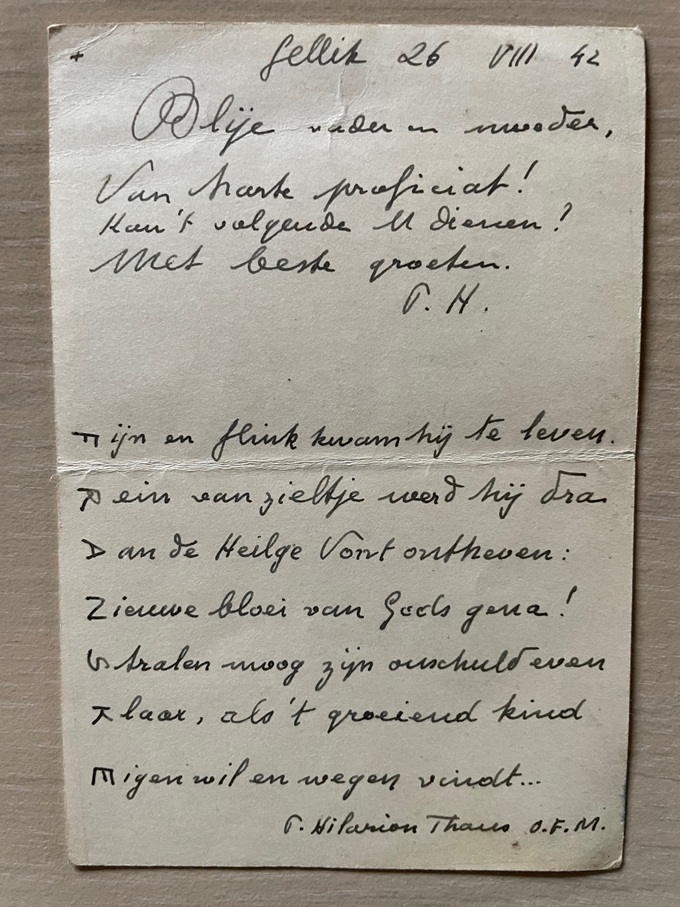 + Gellik 26 VIII 42
Blije vader en moeder,
Van harte proficiat!
Kan 't volgende U dienen?
Met beste groeten.
P. H.
Fijn en flink kwam hij te leven.
Rein van zieltje werd hij dra
Aan de Heilge Vont ontheven:
Nieuwe bloei van Gods gena!
Stralen moog zijn onschuld even
Klaar, als 't groeiend kind
Eigen wil en wegen vindt...
P. Hilarion Thans O.F.M.